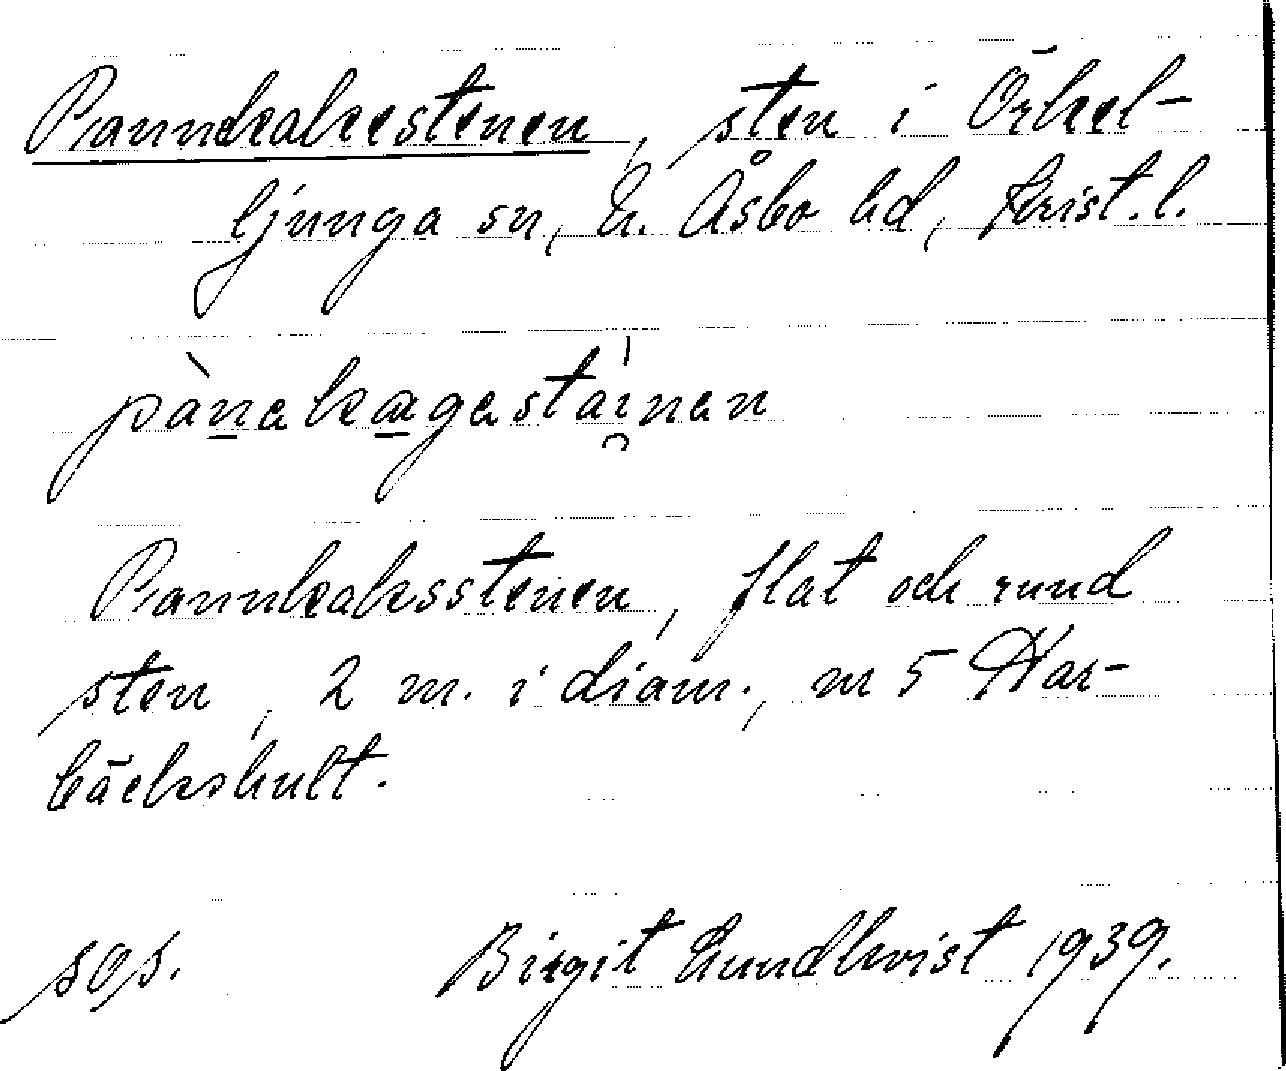 Pannekakestenen, sten i Örkel-
ljunga sn, N. Åsbo hd, Krist. l.
pànekagestáinen
Pannkaksstenen, flat och rund
sten, 2 m. i diam., m 5 Har-
bäckshult.
sgs. Birgit Lundkvist 1939.